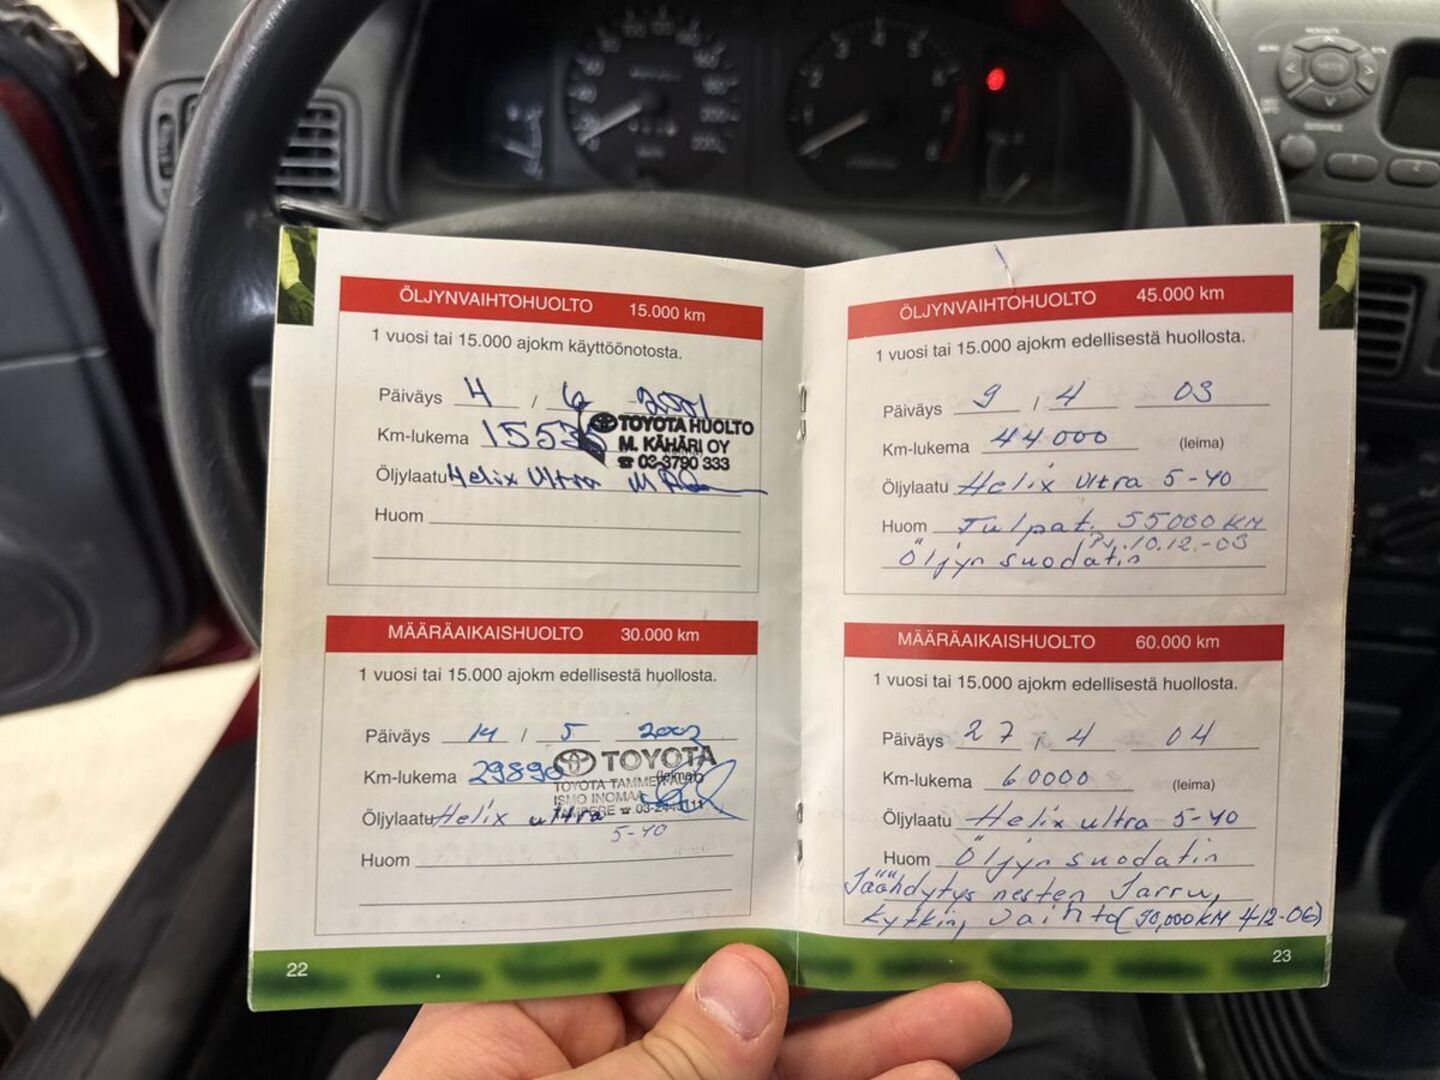 ÖLJYNVAIHTOHUOLTO 15.000 km
1 vuosi tai 15.000 ajokm käyttöönotosta.
Päiväys 4 / 6 2001
Km-lukema 15535
TOYOTA HUOLTO
M. KÄHÄRI OY
☎ 03-3790 333
Öljylaatu Helix Ultra
Huom
MÄÄRÄAIKAISHUOLTO 30.000 km
1 vuosi tai 15.000 ajokm edellisestä huollosta.
Päiväys 14 / 5 2002
Km-lukema 29890 (leima)
TOYOTA
TOYOTA TAMMER-AUTO
ISMO INOMAA
TAMPERE ☎ 03-2443111
Öljylaatu Helix ultra
5-40
Huom
22
ÖLJYNVAIHTOHUOLTO 45.000 km
1 vuosi tai 15.000 ajokm edellisestä huollosta.
Päiväys 9 / 4 03
Km-lukema 44.000 (leima)
Öljylaatu Helix Ultra 5-40
Huom Tulpat. 55000 KM
Pv. 10.12.-03
Öljyn suodatin
MÄÄRÄAIKAISHUOLTO 60.000 km
1 vuosi tai 15.000 ajokm edellisestä huollosta.
Päiväys 27 / 4 04
Km-lukema 60000 (leima)
Öljylaatu Helix ultra 5-40
Huom Öljyn suodatin
Jäähdytys nesten Jarru,
kytkin, vaihto (90,000 KM 4-12-06)
23